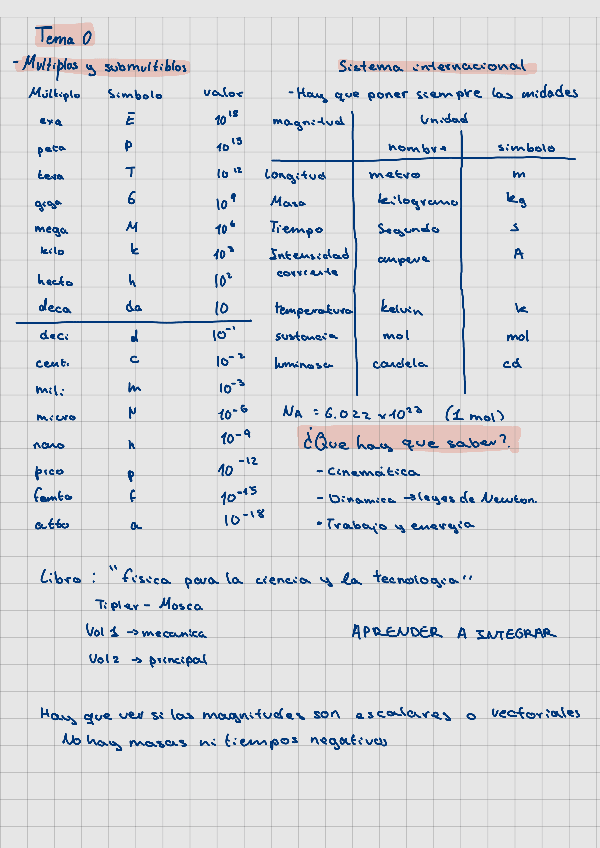 Tema 0
- Multiplos y submultiblos
Múltiplo Simbolo valor
exa E 10^18
peta P 10^15
tera T 10^12
giga G 10^9
mega M 10^6
kilo k 10^3
hecto h 10^2
deca da 10
deci d 10^-1
centi c 10^-2
mili m 10^-3
micro μ 10^-6
nano n 10^-9
pico p 10^-12
femto f 10^-15
atto a 10^-18
Sistema internacional
- Hay que poner siempre las unidades
magnitud Unidad
nombre simbolo
Longitud metro m
Masa kilogramo kg
Tiempo Segundo s
Intensidad ampere A
corriente
temperatura kelvin k
sustancia mol mol
luminosa candela cd
NA = 6.022 x 10^23 (1 mol)
¿Que hay que saber?
- Cinemática
- Dinamica → leyes de Newton.
• Trabajo y energia
Libro : "fisica para la ciencia y la tecnologia"
Tipler - Mosca
Vol 1 → mecanica
Vol 2 → principal
APRENDER A INTEGRAR
Hay que ver si las magnitudes son escalares o vectoriales
No hay masas ni tiempos negativos